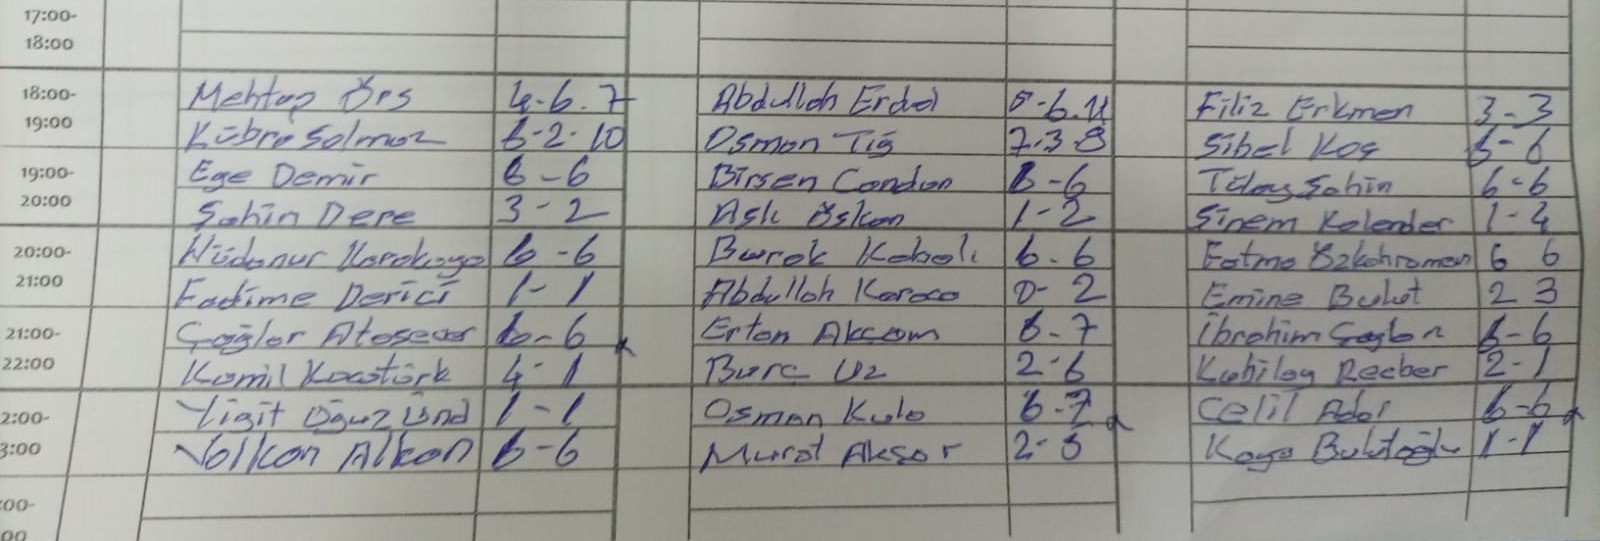 17:00-
18:00
18:00- Mehtap Örs 4-6.7 Abdulloh Erdol 5-6.11 Filiz Erkmen 3-3
19:00 Kübra Solmaz 6-2-10 Osmon Tığ 7.3-8 Sibel Koç 6-6
19:00- Ege Demir 6-6 Birsen Condon 6-6 Tülay Şahin 6-6
20:00 Şahin Dere 3-2 Aslı Öskan 1-2 Sinem Kalender 1-4
20:00- Nüdanur Karakaya 6-6 Burak Kabalı 6-6 Fatma Özkahraman 6 6
21:00 Fadime Derici 1-1 Abdullah Karaca 0-2 Emine Bulut 2 3
21:00- Çağlar 6-6 Ertan Akcam 6-7 İbrahim Çağlan 6-6
22:00 Kamil 4-1 Burç Uz 2-6 Kubilay Recber 2-1
2:00- Yigit Oğuz Ünd 1-1 Osman Kula 6-7 Celil Adar 6-6
3:00 Volkan Alkan 6-6 Murat Aksar 2-5 Kaya Bulutoğlu 1-1
:00-
00